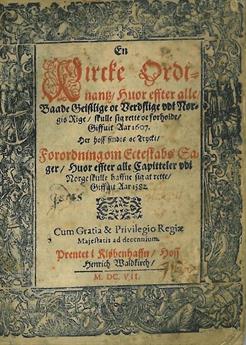 En
Kircke Ordi-
nantz/ Huor effter alle/
Baade Geistlige oc Verdslige vdi Nor-
gis Rige/ skulle sig rette oc forholde/
Giffuit Aar 1607.
Her hoss findes oc Tryckt/
Forordning om Ecteskabs Sa-
ger/ Huor effter alle Capitteler vdi
Norge skulle haffue sig at rette/
Giffuit Aar 1582.
Cum Gratia & Privilegio Regiæ
Majestatis ad decennium.
Prentet i Kiøbenhaffn/ Hoss
Henrich Waldkirch/
M. DC. VII.